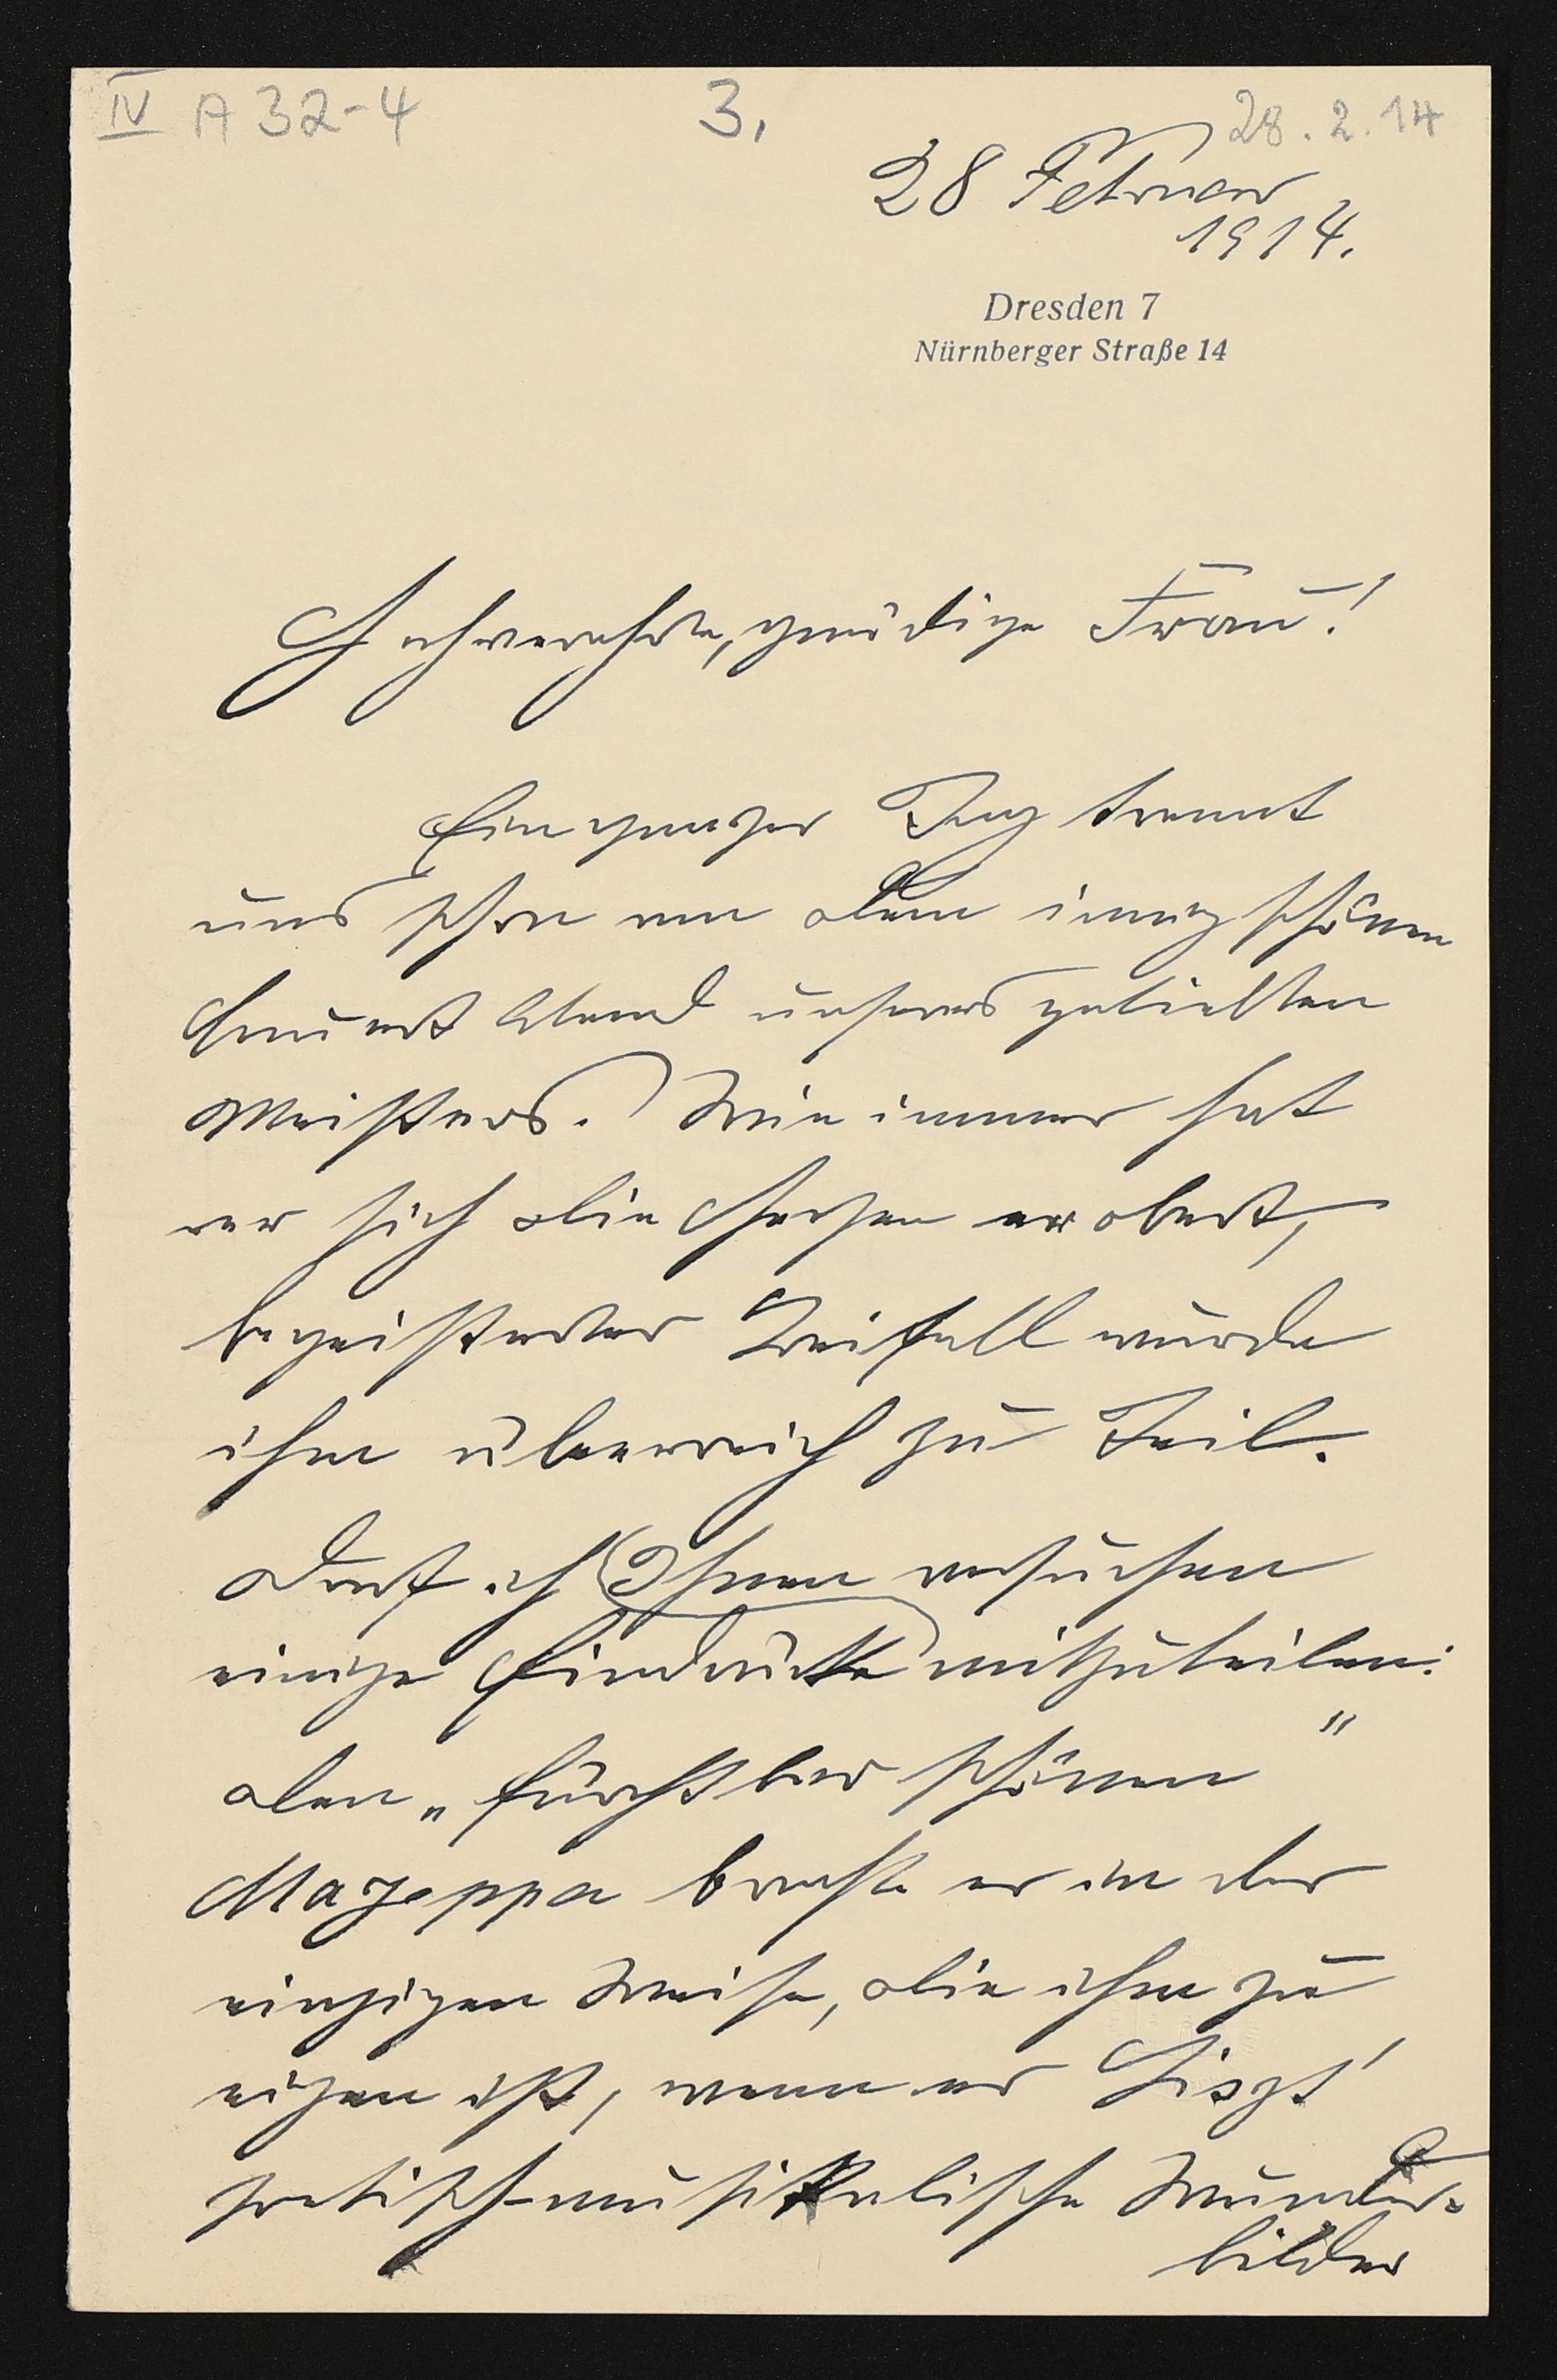 IV A 32-4 3. 28.2.14
28 Februar
1914.
Dresden 7
Nürnberger Straße 14
Hochverehrte, gnädige Frau!
Ein ganzer Tag trennt
uns schon von dem innig schönen
Abend unseres geliebten
Meisters. Wie immer hat
er sich die Herzen erobert,
begeisterter Beifall wurde
ihm überreich zu Teil.
Darf ich Ihnen versuchen
einige Eindrücke mitzuteilen:
den „furchtbar schönen"
Mazeppa brachte er in der
einzigen Weise, die ihm zu
eigen ist, wenn er Liszt'
poetisch-musikalische Wunder-
bilder